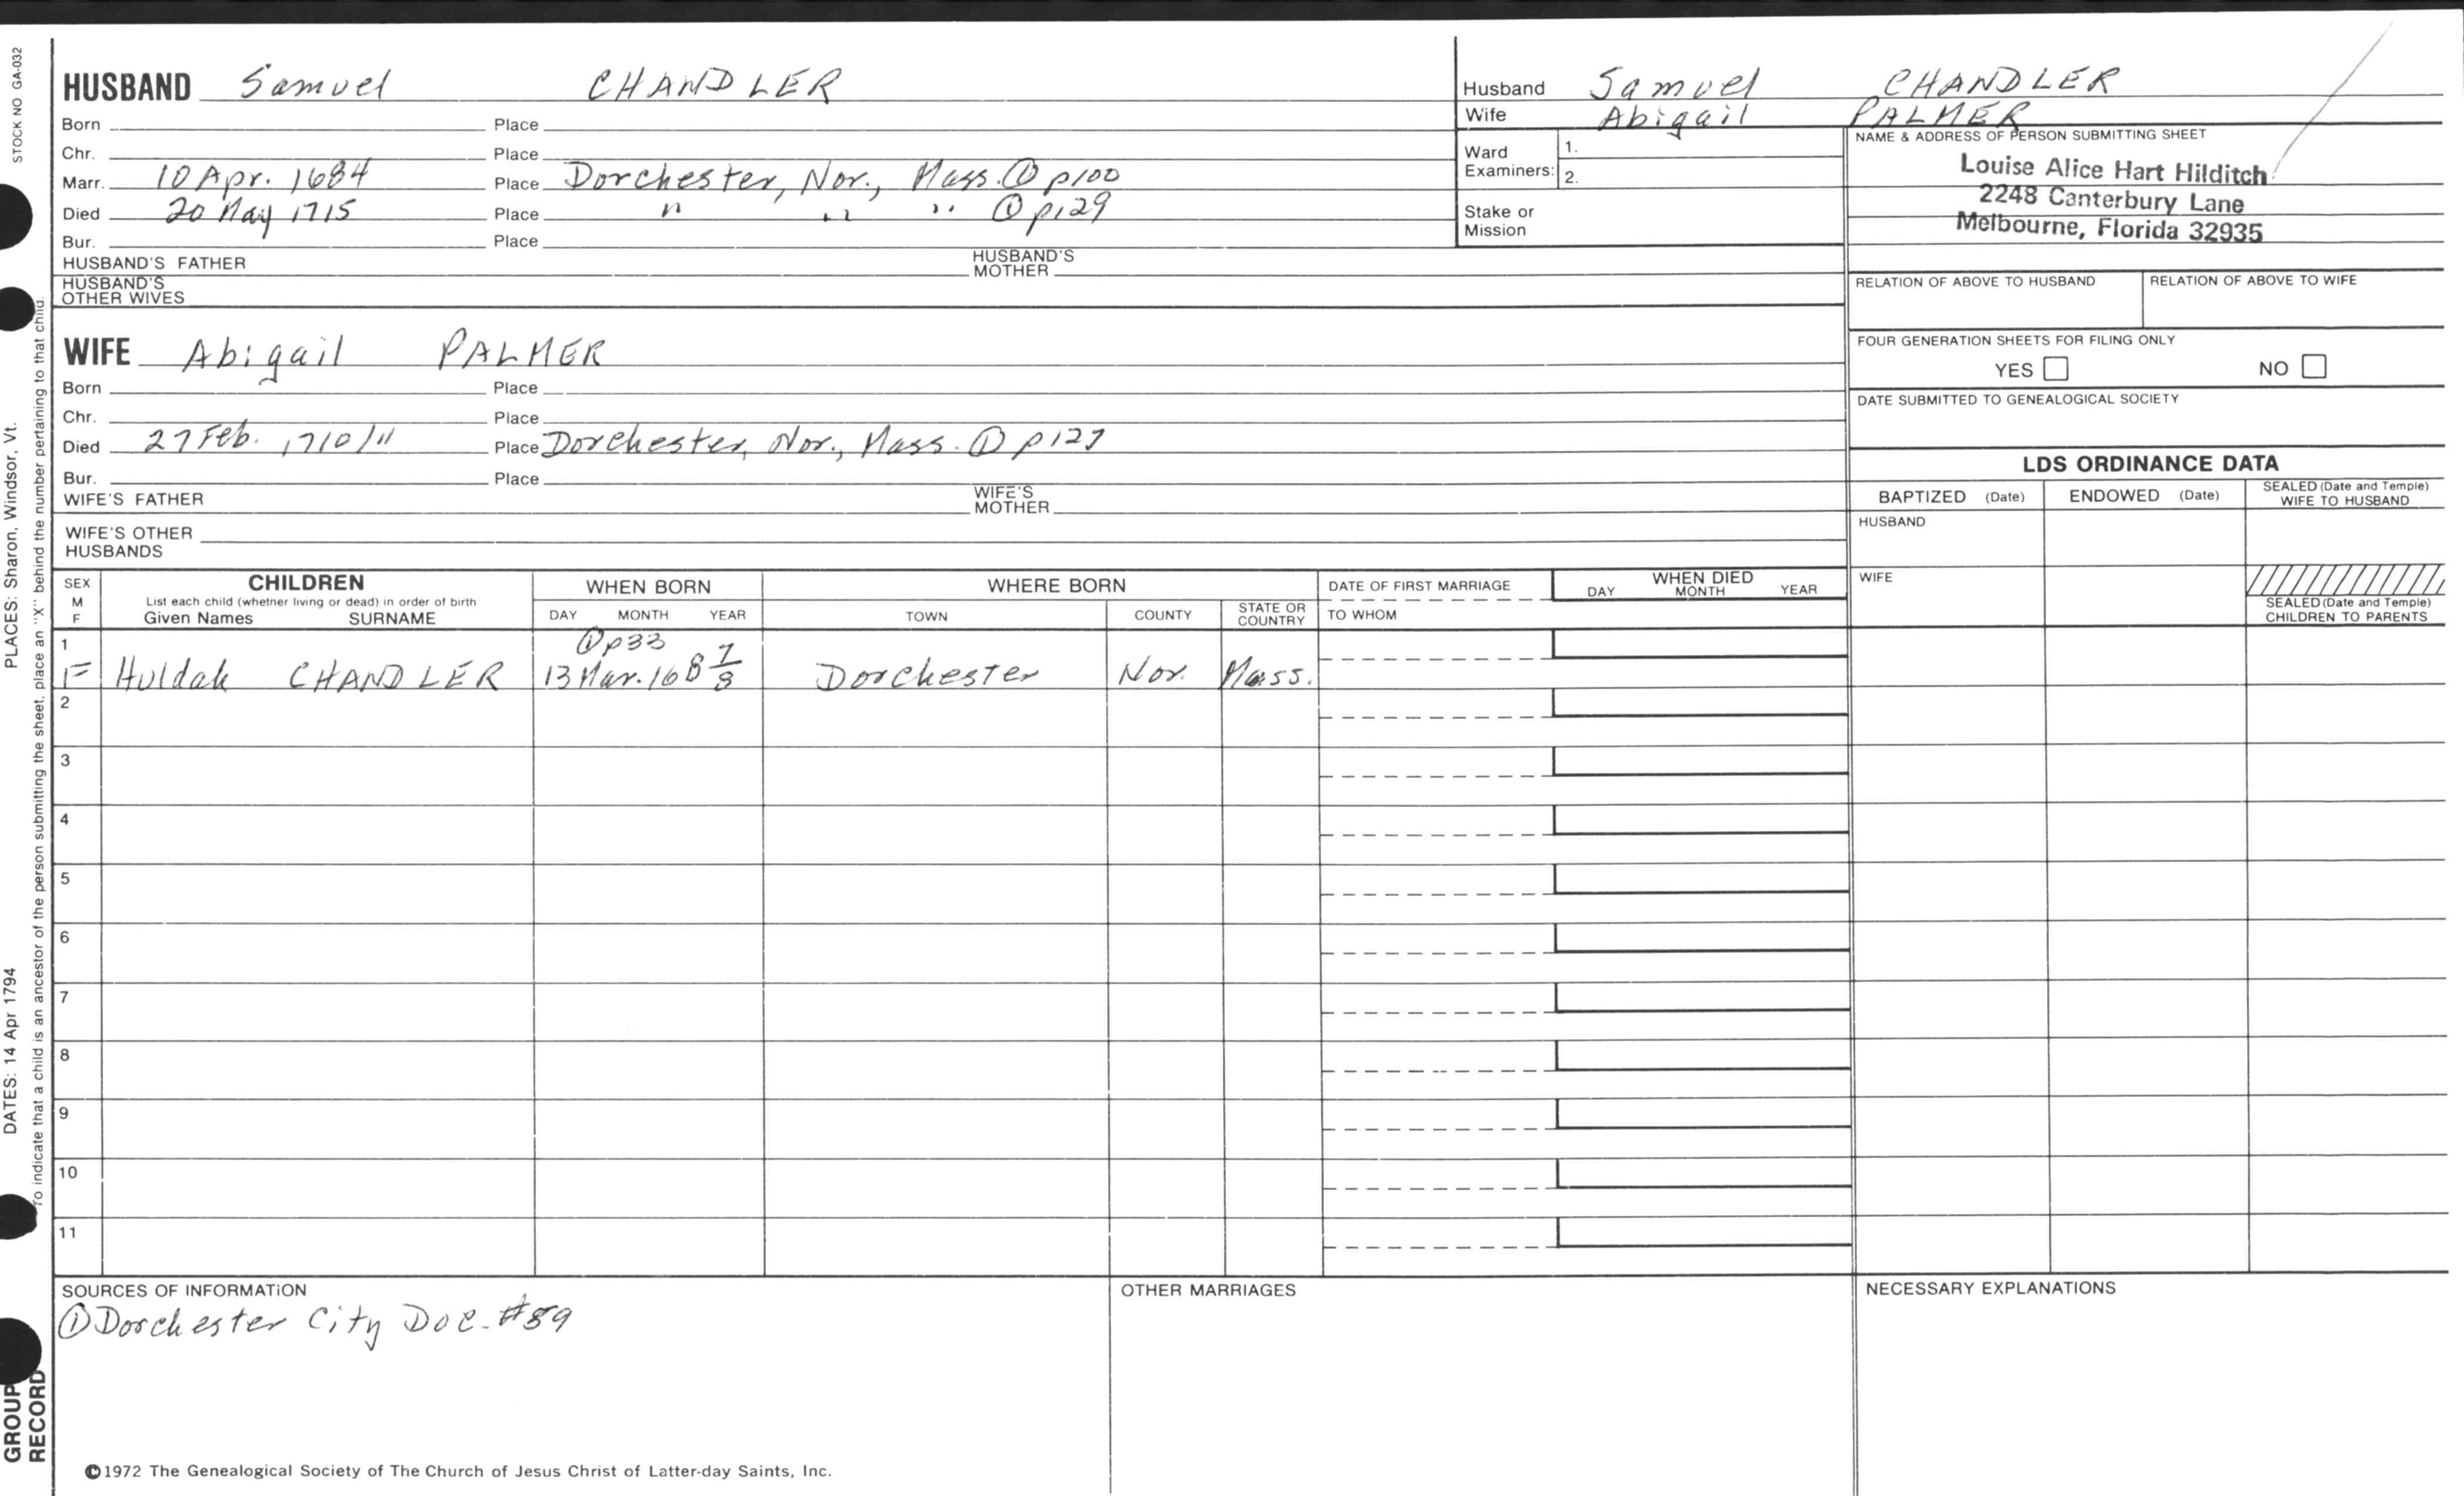 STOCK NO GA-032
PLACES: Sharon, Windsor, Vt.
DATES: 14 Apr 1794
To indicate that a child is an ancestor of the person submitting the sheet, place an "X" behind the number pertaining to that child.
GROUP
RECORD
HUSBAND Samuel CHANDLER
Born Place
Chr. Place
Marr. 10 Apr. 1684 Place Dorchester, Nor., Mass. ① p100
Died 20 May 1715 Place " " " ① p129
Bur. Place
HUSBAND'S FATHER HUSBAND'S MOTHER
HUSBAND'S
OTHER WIVES
WIFE Abigail PALMER
Born Place
Chr. Place
Died 27 Feb. 1710/11 Place Dorchester, Nor., Mass. ① p127
Bur. Place
WIFE'S FATHER WIFE'S MOTHER
WIFE'S OTHER
HUSBANDS
Husband Samuel CHANDLER
Wife Abigail PALMER
Ward
Examiners: 1.
2.
Stake or
Mission
NAME & ADDRESS OF PERSON SUBMITTING SHEET
Louise Alice Hart Hilditch
2248 Canterbury Lane
Melbourne, Florida 32935
RELATION OF ABOVE TO HUSBAND RELATION OF ABOVE TO WIFE
FOUR GENERATION SHEETS FOR FILING ONLY
YES NO
DATE SUBMITTED TO GENEALOGICAL SOCIETY
LDS ORDINANCE DATA
BAPTIZED (Date) ENDOWED (Date) SEALED (Date and Temple)
WIFE TO HUSBAND
HUSBAND
WIFE
SEALED (Date and Temple)
CHILDREN TO PARENTS
SEX
M
F
CHILDREN
List each child (whether living or dead) in order of birth
Given Names SURNAME
WHEN BORN
DAY MONTH YEAR
WHERE BORN
TOWN COUNTY STATE OR
COUNTRY
DATE OF FIRST MARRIAGE
TO WHOM
WHEN DIED
DAY MONTH YEAR
1 ① p33
F Huldah CHANDLER 13 Mar. 168 7/8 Dorchester Nor. Mass.
2
3
4
5
6
7
8
9
10
11
SOURCES OF INFORMATION
① Dorchester City Doc. #59
OTHER MARRIAGES
NECESSARY EXPLANATIONS
©1972 The Genealogical Society of The Church of Jesus Christ of Latter-day Saints, Inc.